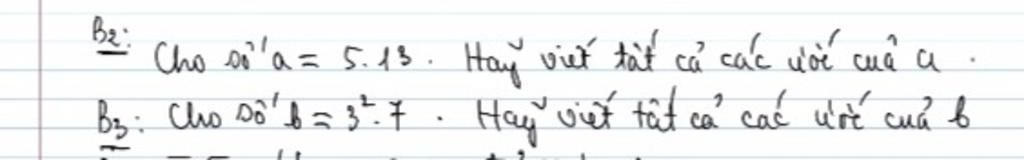 B2: Cho số a = 5.13. Hãy viết tất cả các ước của a.
B3: Cho số b = 3².7. Hãy viết tất cả các ước của b